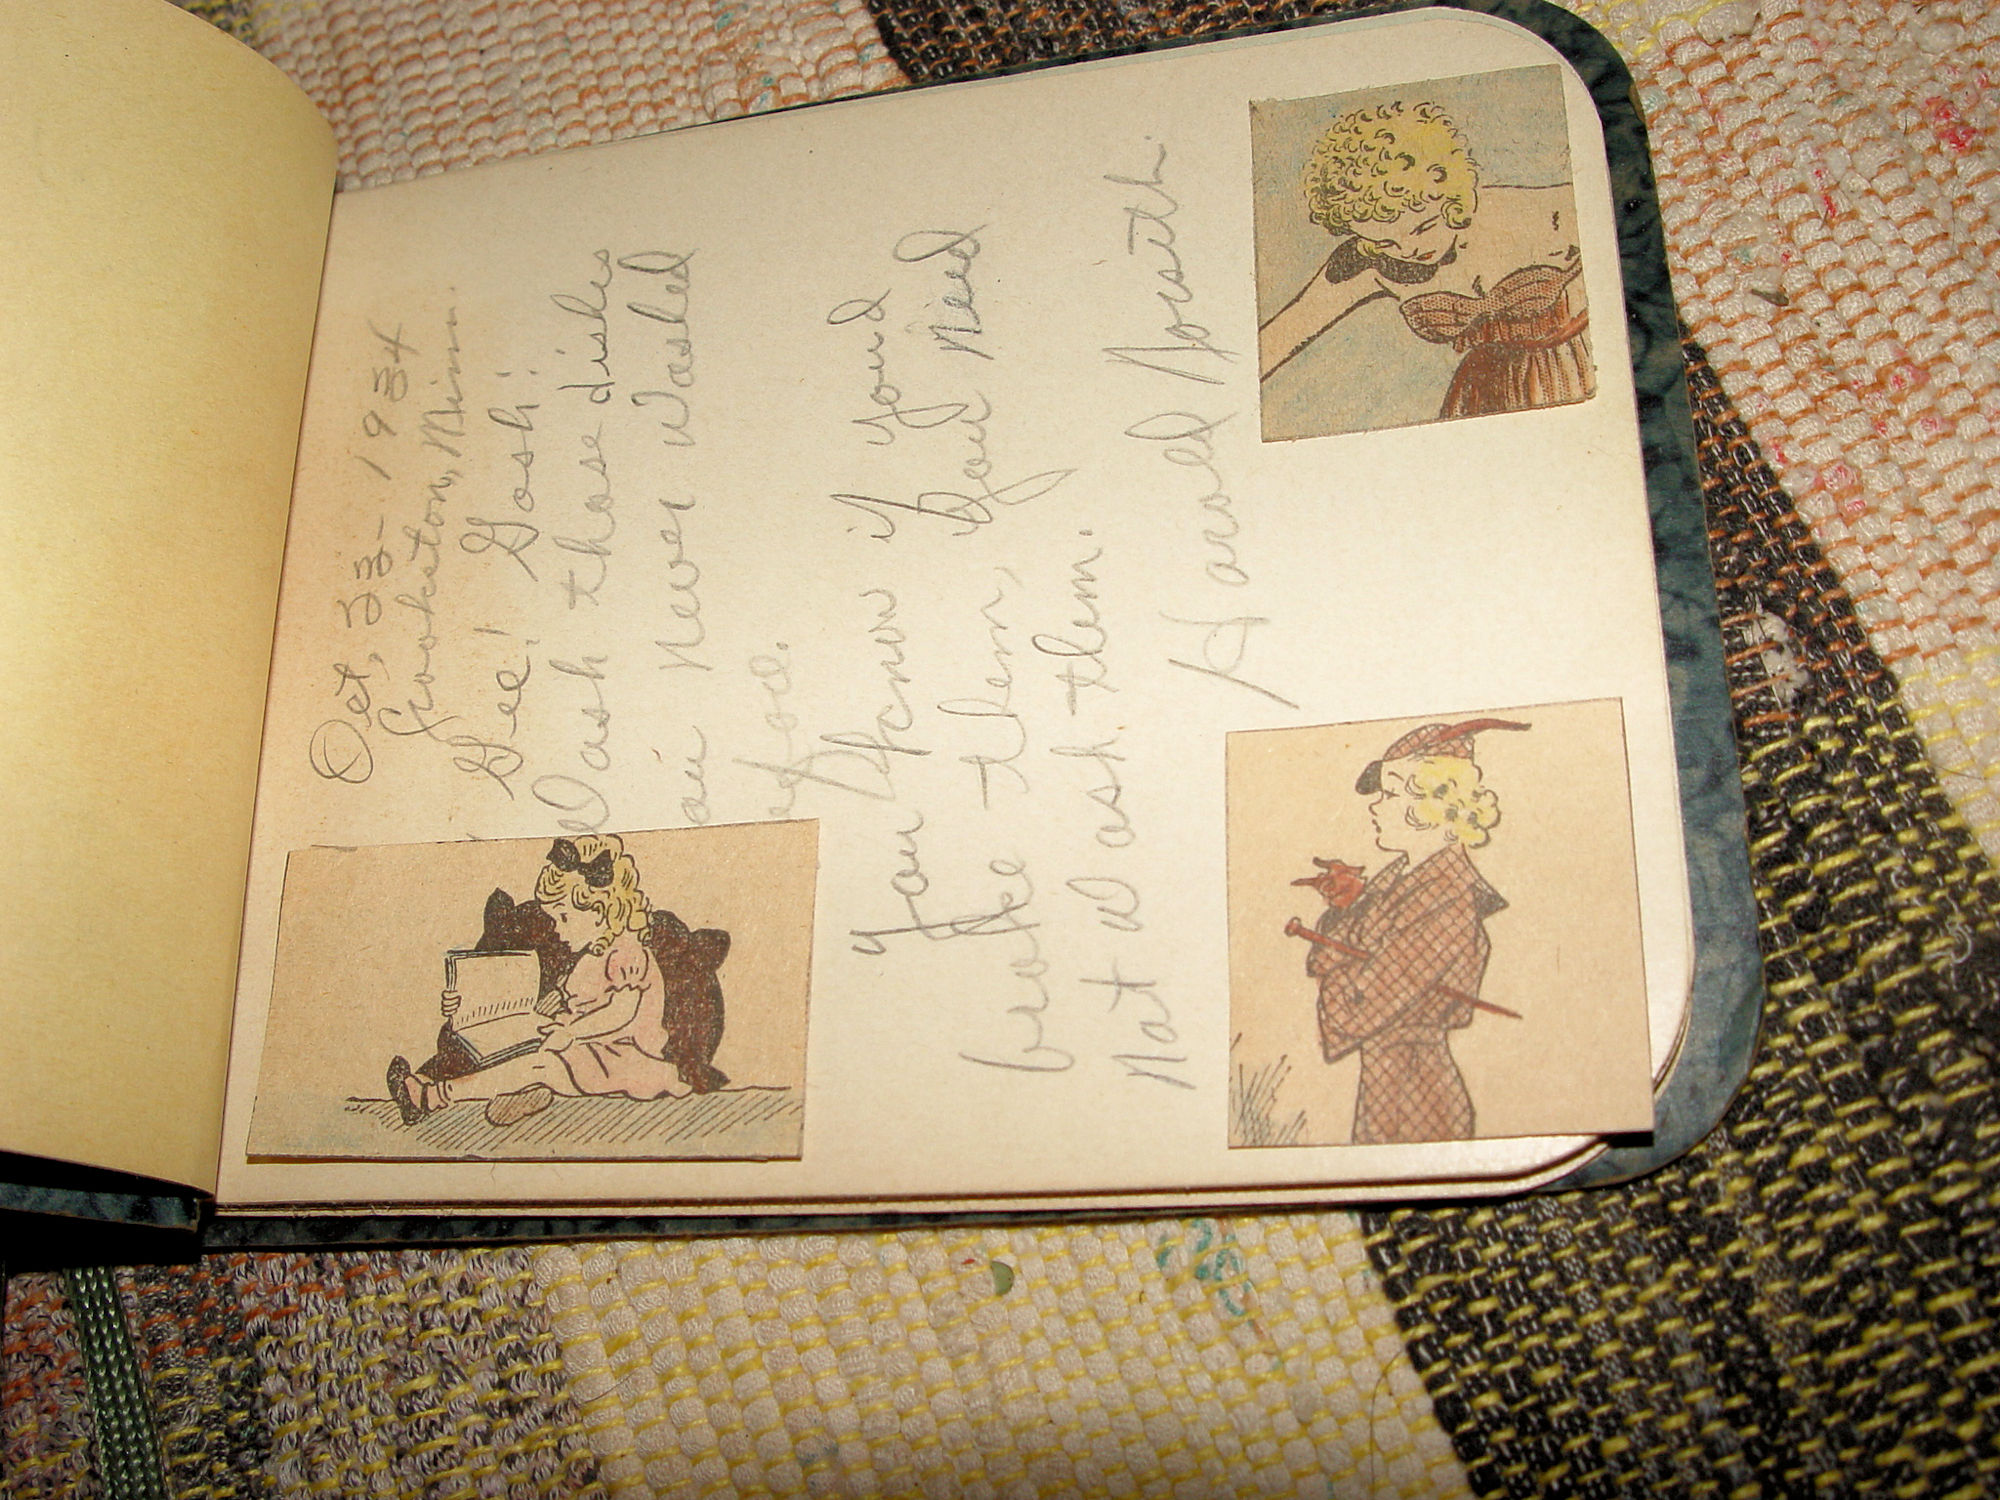 Oct, 23- 1934
Crookston, Minn.
Gee! Gosh!
Wash those dishes
ain never washed
efore.
You know if youd
broke them, Youd need
Not wash them.
Harold